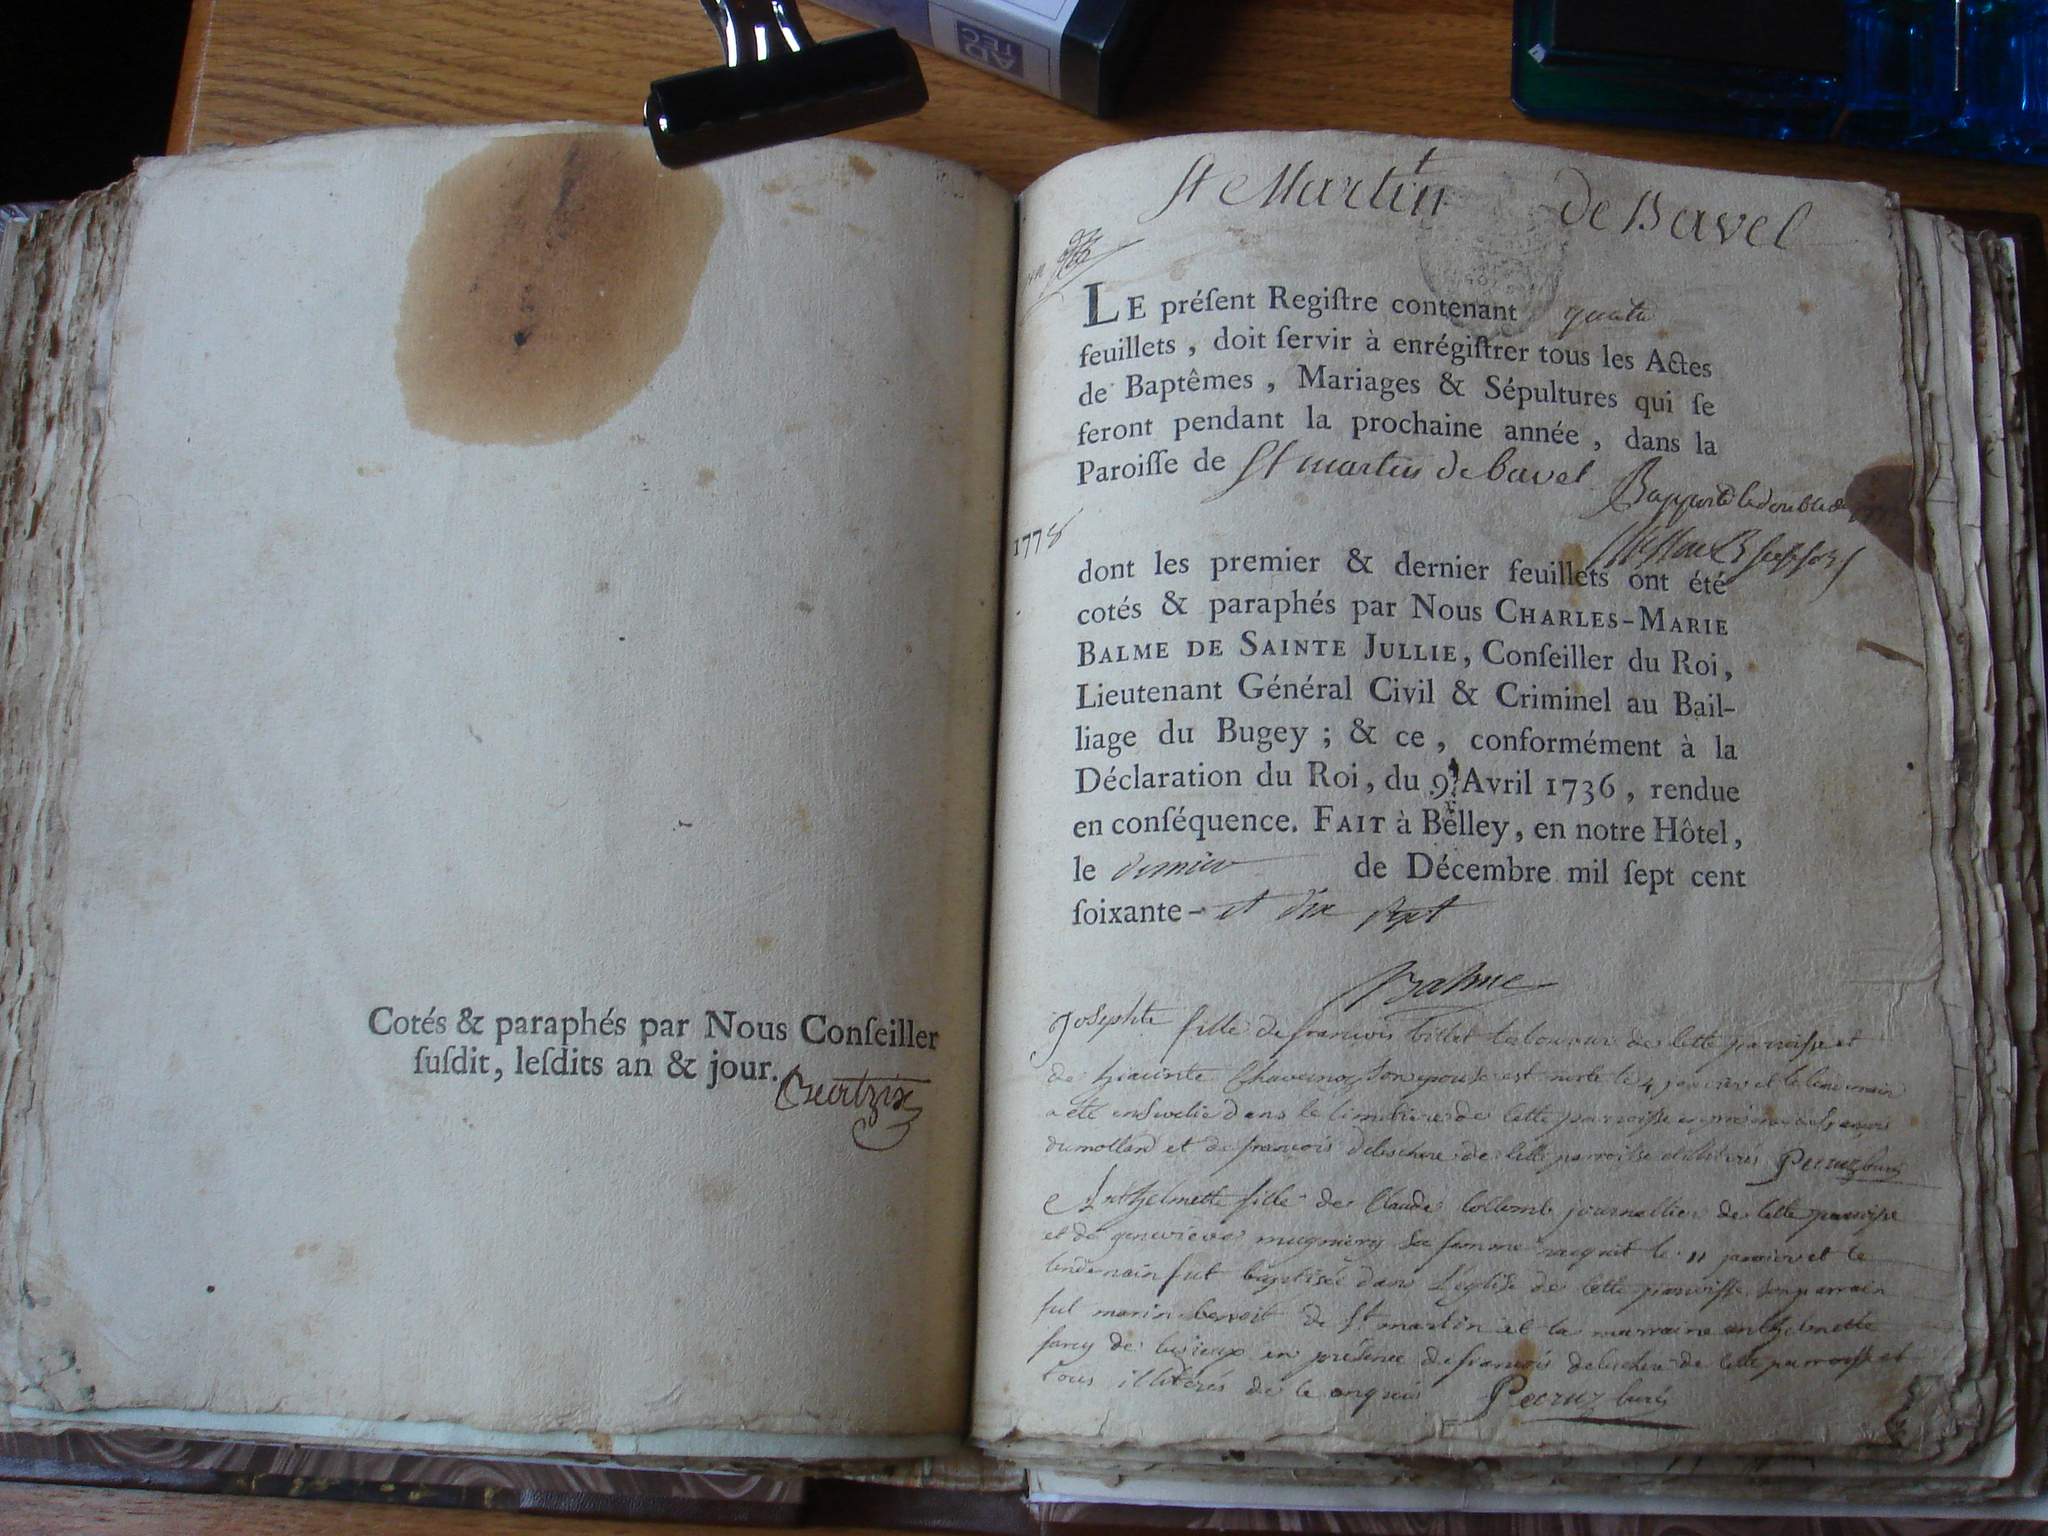 AD
TEC
Cotés & paraphés par Nous Conſeiller
ſuſdit, leſdits an & jour.
St Martin de Bavel
LE préſent Regiſtre contenant quatre
feuillets, doit ſervir à enrégiſtrer tous les Actes
de Baptêmes, Mariages & Sépultures qui ſe
feront pendant la prochaine année, dans la
Paroiſſe de St martin de bavel
1778
dont les premier & dernier feuillets ont été
cotés & paraphés par Nous CHARLES-MARIE
BALME DE SAINTE JULLIE, Conſeiller du Roi,
Lieutenant Général Civil & Criminel au Bail-
liage du Bugey ; & ce, conformément à la
Déclaration du Roi, du 9 Avril 1736, rendue
en conſéquence. FAIT à Belley, en notre Hôtel,
le dernier de Décembre mil ſept cent
ſoixante- et dix sept
Balme
Josephte fille de francois billet laboureur de cette parroisse et
de hiacinte son epouse est morte le 4 janvier et le lendemain
a été ensevelie dans le cimetiere de cette parroisse
dumollard et de francois delachere de cette parroisse Pecruz curé
Anthelmette fille de Claude Collomb journallier de cette parroisse
et de genevieve mugniery sa femme naquit le 11 janvier et le
lendemain fut baptisée dans l'eglise de cette parroisse son parrain
fut marin benoit de St martin et la marraine anthelmette
farcy de en présence de francois delachere de cette parroisse et
tous illitérés de ce enquis Pecruz curé